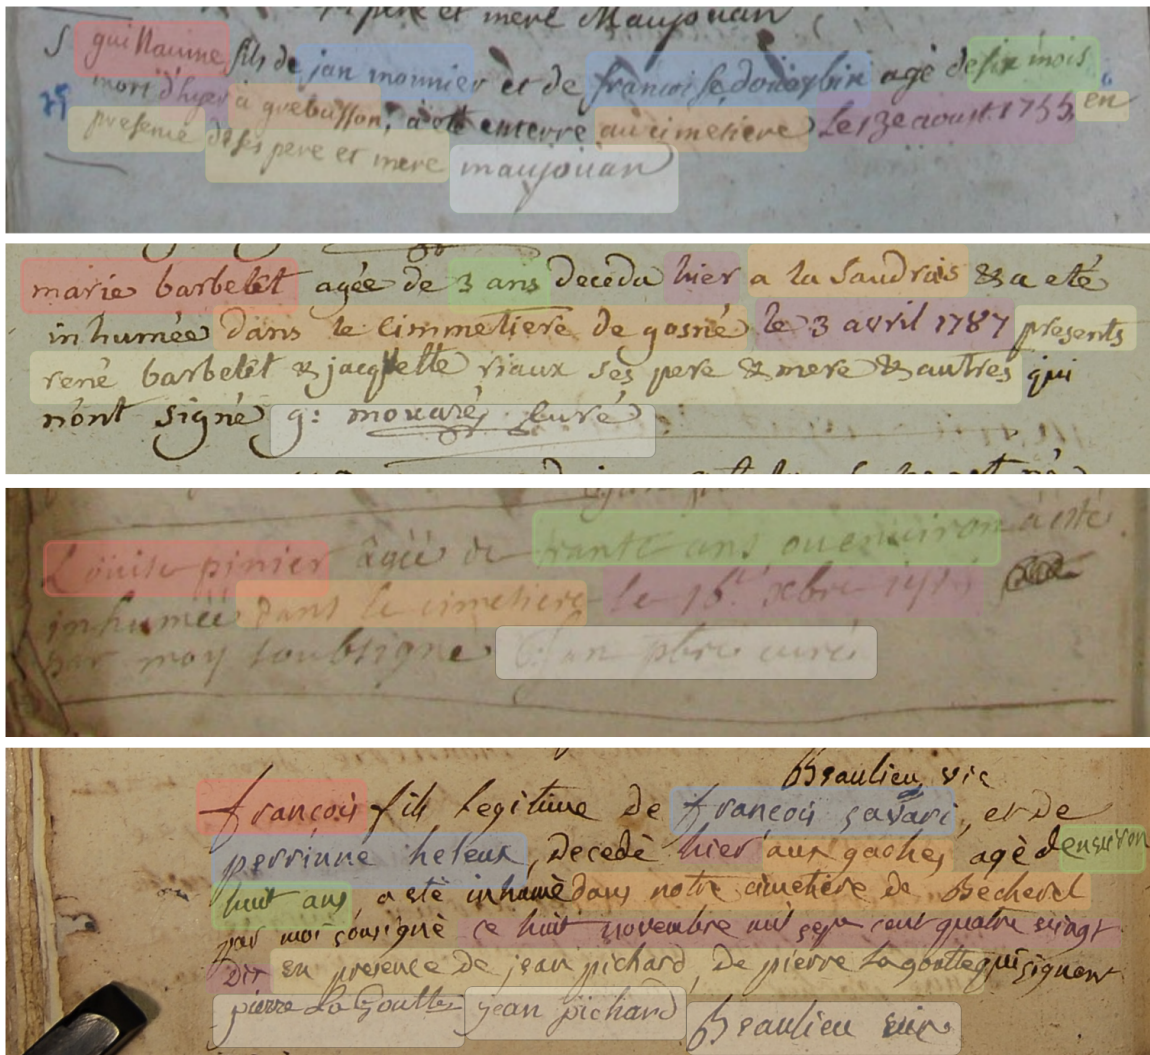 pere et mere Maujouan
S guillaume fils de jan monnier et de francoise doüesbin agé de six mois
mort d'hyer à grebusson, a esté enterré au cimetiere le 13e aoust 1755, en
presence de ses pere et mere maujouan
marie barbelet agée de 3 ans decedu hier a la Saudrais & a eté
inhumée dans le cimmetiere de gosné le 3 avril 1787 presents
rené barbelet & jacquette riaux ses pere & mere & autres qui
n'ont signé g: mouazé, curé
Loüise pinier âgée de trante ans ou environ a esté
inhumée dans le cimetiere le 16e xbre
par moy soubsigné ptre curé
Beaulieu vic
françois fils legitime de françois savari, et de
perrinne heleux, decedé hier aux gaches agé denviron
huit ans, a eté inhumé dans notre cimetiere de Becherel
par moi sousigné ce huit novembre mil sept cent quatre vingt
dix en presence de jean pichard, de pierre Lagoutte qui signent
pierre LaGoutte jean pichard Beaulieu vic